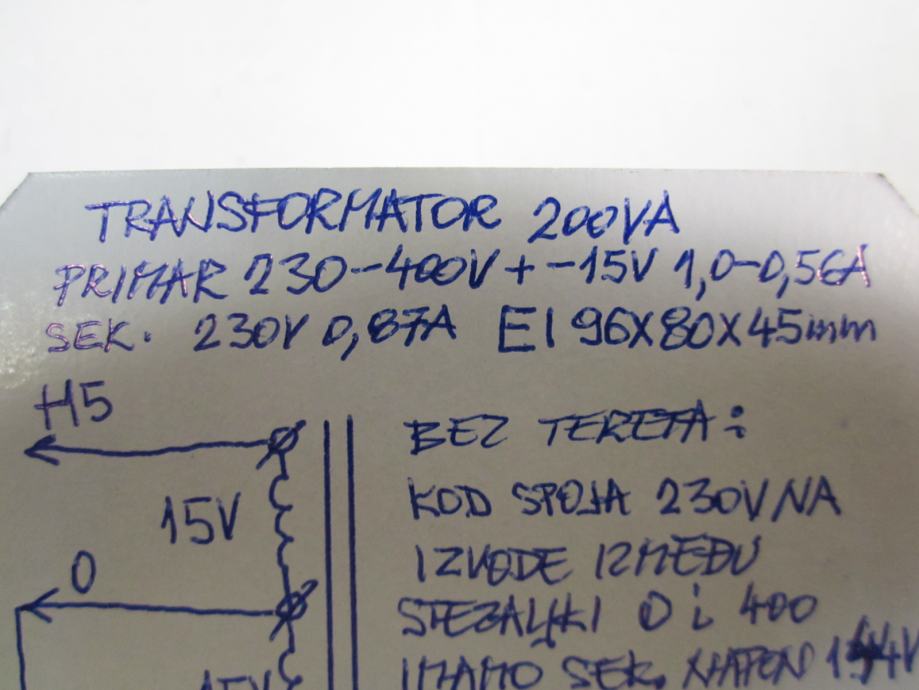 TRANSFORMATOR 200VA
PRIMAR 230-400V + -15V 1,0-0,56A
SEK. 230V 0,87A EI 96X80X45mm
H5
15V
0
15V
BEZ TERETA:
KOD SPOJA 230V NA
IZVODE IZMEĐU
STEZALJKI 0 i 400
IMAMO SEK. NAPON